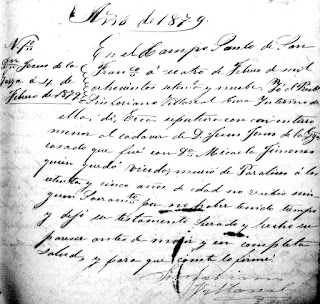 Año de 1879.
Nº
Dn Jesus de la
Garza á 4 de
Febro de 1879
En el Campo Santo de San
Franco á cuatro de Febro de mil
ochocientos setenta y nueve. Yó el Presbo
Villareal Cura Interino de
ella, di Ecca sepultura con entierro
menor al cadaver de D. Jesus de la Gza
casado que fué con Da Micaela Jimenes
quien quedó viudo; murió de Paralisis á los
setenta y cinco años de edad no recibió nin
gun Sacramto por no haber tenido tiempo
y dejó su testamento serado y hecho su
antes de y en completa
salud, y para que conste lo firmé.
Villareal